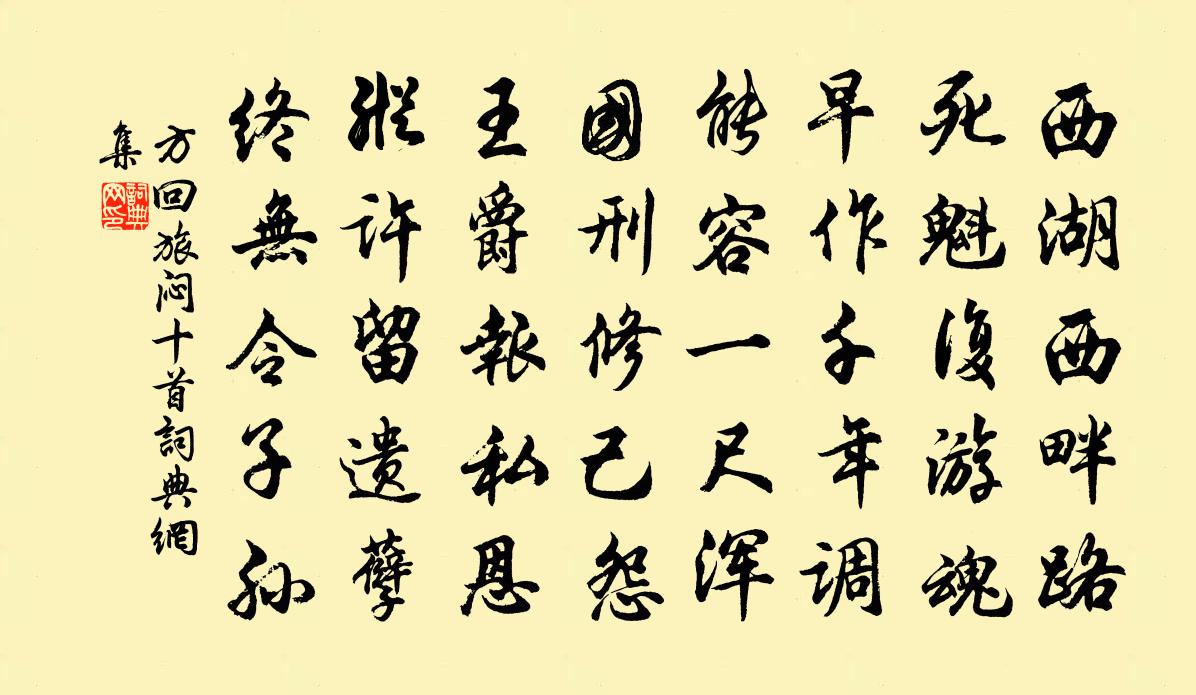 西湖西畔路
死魁復游魂
早作千年调
能容一尺浑
國刑修己怨
王爵報私恩
縱许留遗孽
終無令子孙
方回旅闷十首詞典網
集
詞典
网印